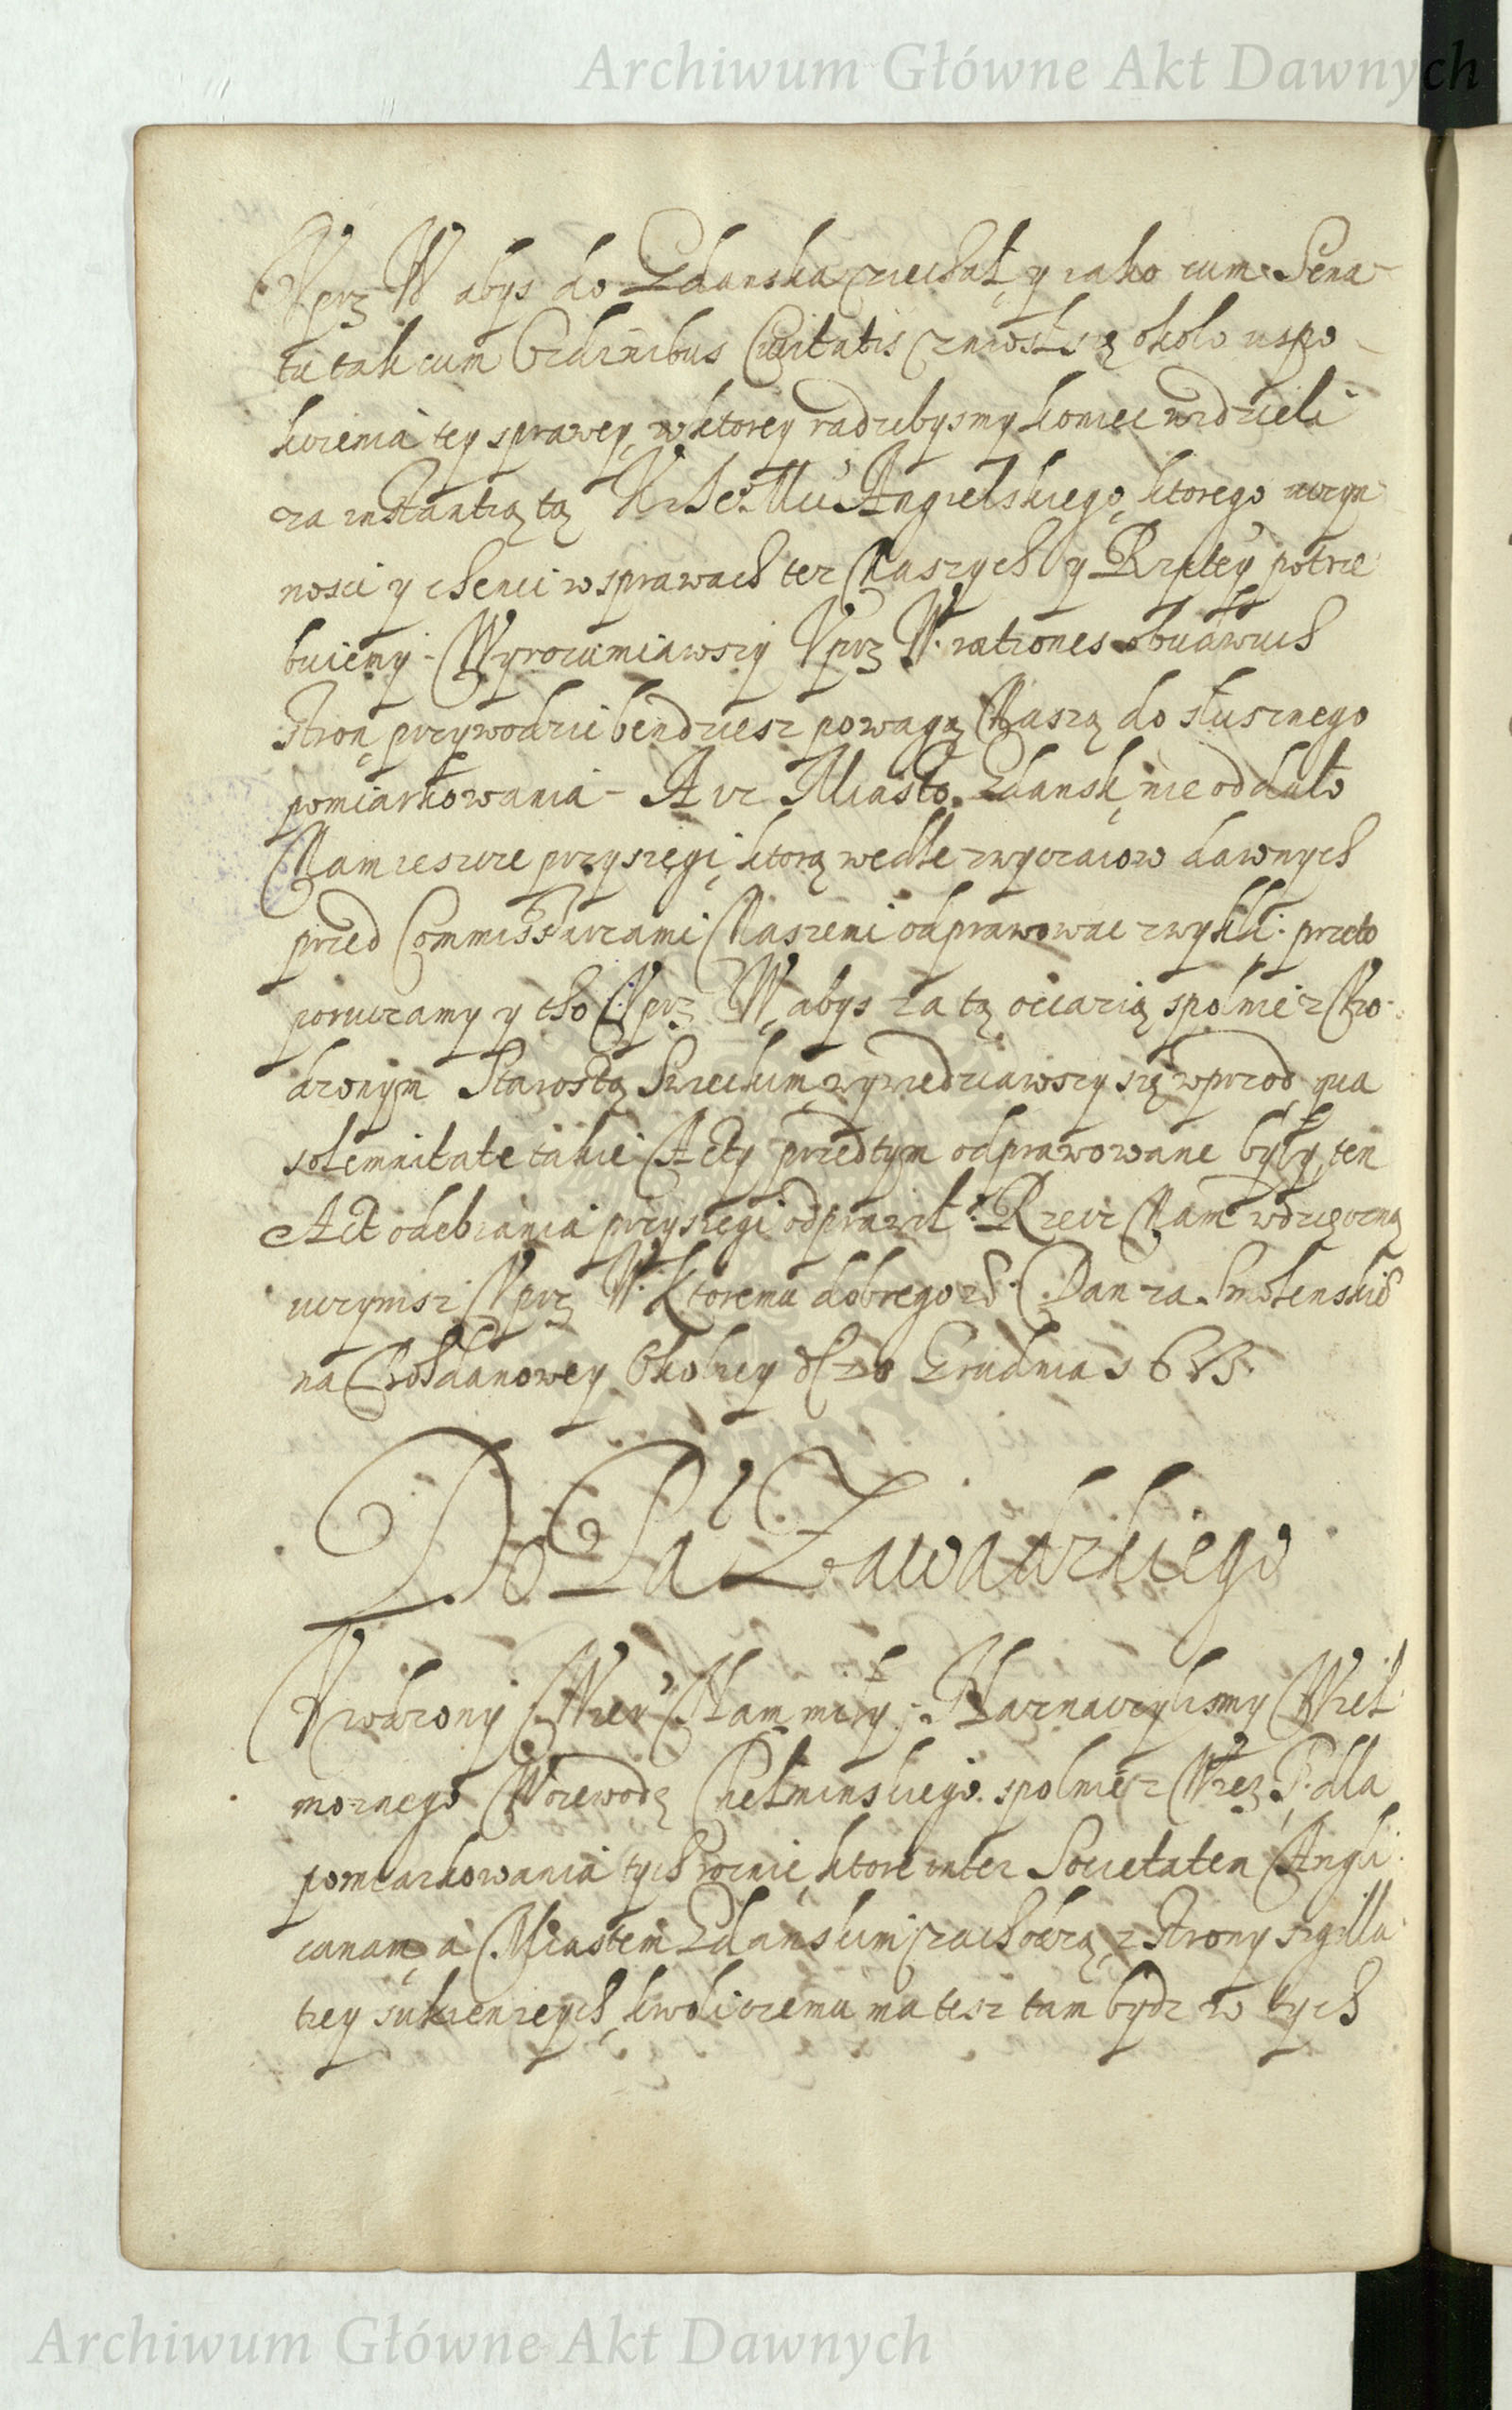 Archiwum Główne Akt Dawnych
Vprz W abys do Gdanska ziechał, y iako cum Sena-
tu tak cum Ordinibus Civitatis zniosł się okolo uspo-
koienia tey sprawy, w ktorey radzibysmy koniec widzieli
za instantią tą Kr Je Mci Angielskiego, ktorego uczyn
nosci y chenci w sprawach tez Naszych y Rzptey potrze
buiemy. Wyrozumiawszy Vprz W. rationes obudwuch
stron, przywodzic bendziesz powagą Naszą do słusznego
pomiarkowania. A iz Miasto Gdansk, nie oddało
Nam ieszcze przysięgi, ktorą wedle zwyczaiow dawnych
przed Commissarzami Naszemi odprawowac zwykli: przeto
poruczamy y tho Vprz W, abys za tą occazią spolnie z Vro-
dzonym Starostą Swieckim, wywiedziawszy się wprzod, qua
solemnitate takie Acty przedtym odprawowane były, ten
Act odebrania przysięgi odprawił. Rzecz Nam wdzięczną
uczynisz Vprz W. Ktoremu dobrego z. Dan za Smolenskiem
na Bohdanowey Okolicy d 20 Grudnia 1633.
Do Pa Zawadzkiego
Vrodzony Wier Nam miły. Naznaczylismy Wiel
moznego Woiewodę Chełminskiego. spolnie z Wier. P. dla
pomiarkowania tych roznic, ktore inter Societatem Angli
canam, a Miastem Gdanskim zachodzą, z strony sigilla
tiey sukiennych, kwoli czemu ma tesz tam bydz w tych
Archiwum Główne Akt Dawnych